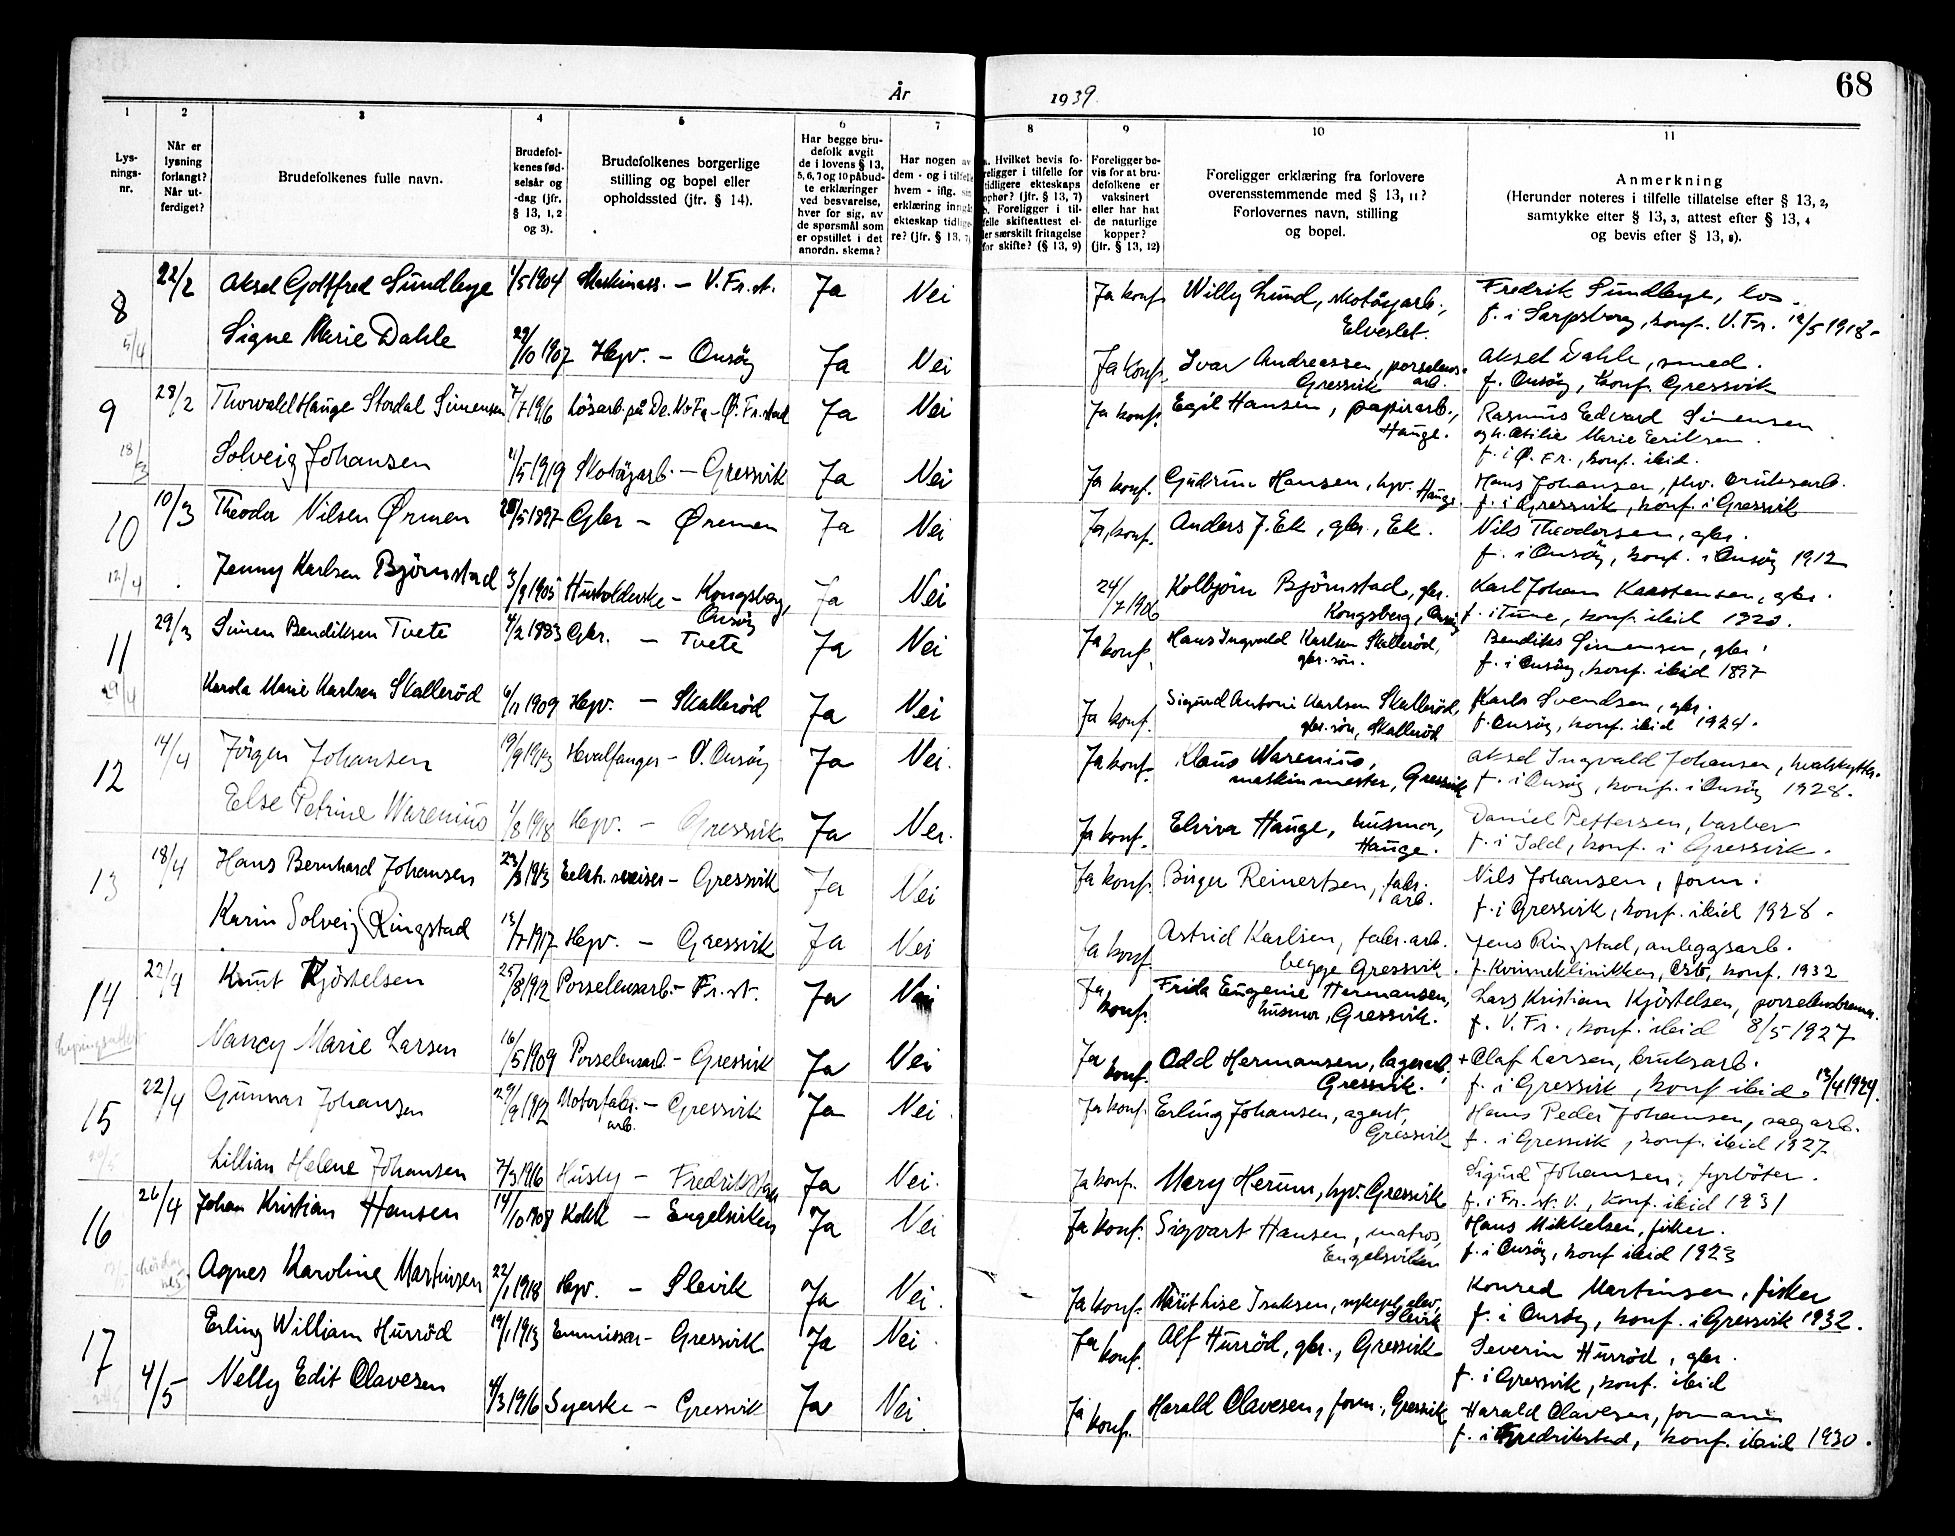 68
År
1939.
1 2 3 4 5 6 7 8 9 10 11
Lys-
nings-
nr.
Når er
lysning
forlangt?
Når ut-
ferdiget?
Brudefolkenes fulle navn.
Brudefol-
kenes fød-
selsår og
-dag (jfr.
§ 13, 1, 2
og 3).
Brudefolkenes borgerlige
stilling og bopel eller
opholdssted (jfr. § 14).
Har begge bru-
defolk avgit
de i lovens § 13,
5, 6, 7 og 10 påbud-
te erklæringer
ved besvarelse,
hver for sig, av
de spørsmål som
er opstillet i det
anordn. skema?
Har nogen av
dem - og i tilfelle
hvem - iflg. sin
erklæring inngått
ekteskap tidlige-
re? (jfr. § 13, 7)
a. Hvilket bevis fo-
religger i tilfelle for
tidligere ekteskaps
ophør? (jfr. § 13, 7)
b. Foreligger i til-
felle skifteattest el-
ler særskilt fritagelse
for skifte? (§ 13, 9)
Foreligger be-
vis for at bru-
defolkene er
vaksinert
eller har hat
de naturlige
kopper?
(jfr. § 13, 12)
Foreligger erklæring fra forlovere
overensstemmende med § 13, 11?
Forlovernes navn, stilling
og bopel.
Anmerkning
(Herunder noteres i tilfelle tillatelse efter § 13, 2,
samtykke efter § 13, 3, attest efter § 13, 4
og bevis efter § 13, 8).
8 22/2 Aksel Gottfred Sundbye 1/5 1904 Maskinass. - V. Fr.st. Ja Nei Ja konf. Willy Lund, skotøyarb., Fredrik Sundbye, los.
Elveslet. f. i Sarpsborg, konf. V. Fr. 12/5 1918.
5/4 Signe Marie Dahle 29/10 1907 Hpv. - Onsøy Ja Nei Ja konf. Ivar Andreassen, porselens- Aksel Dahle, smed.
arb. Gressvik f. Onsøy, konf. Gressvik
9 28/2 Thorvald Hauge Stordal Simensen 7/7 1916 Løsarb. på De.No.Fa - Ø. Fr.stad Ja Nei Ja konf. Egil Hansen, papirarb., Rasmus Edvard Simensen
Hauge. og h. Otilie Marie Eriksen.
f. i Ø. Fr., konf. ibid.
18/3 Solveig Johansen 21/5 1919 Skotøyarb. - Gressvik Ja Nei Ja konf. Gudrun Hansen, hpv. Hauge Hans Johansen, fhv. bruksarb.
f. i Gressvik, konf. i Gressvik
10 10/3 Theodor Nilsen Ørmen 28/5 1897 Gbr - Ørmen Ja Nei Ja, konf. Anders J. Ek, gbr., Ek. Nils Theodorsen, gbr.
f. i Onsøy, konf. i Onsøy 1912
12/4 Jenny Karlsen Bjørnstad 3/9 1905 Husholderske - Kongsberg, Onsøy Ja Nei 24/7 1906 Kolbjørn Bjørnstad, gbr. Karl Johan Karstensen, gbr.
Kongsberg, Onsøy f. i Tune, konf. ibid 1920.
11 29/3 Simen Bendiksen Tvete 4/2 1883 Gbr. - Tvete Ja Nei Ja konf. Hans Ingvald Karlsen Skallerød, Bendiks Simensen, gbr.
gbr. søn. f. i Onsøy, konf. ibid 1897
29/4 Karda Marie Karlsen Skallerød 6/11 1909 Hpv. - Skallerød Ja Nei Ja konf. Sigurd Antoni Karlsen Skallerød, Karl Svendsen, gbr.
gbr. søn, Skallerød f. Onsøy, konf. ibid 1924.
12 14/4 Jörgen Johansen 19/9 1913 Hvalfanger - V. Onsøy Ja Nei. Ja konf. Klaus Warenius, Aksel Ingvald Johansen, hvalskytter.
maskinmester, Gressvik f. i Onsøy, konf. i Onsøy 1928.
Else Petrine Warenius 1/8 1918 Hpv. - Gressvik Ja Nei. Ja konf. Elvira Hauge, husmor, Daniel Pettersen, barber
Hauge. f. i Idd, konf. i Gressvik.
13 18/4 Hans Bernhard Johansen 23/3 1913 Elektr. sveiser - Gressvik Ja Nei Ja konf. Birger Reinertsen, fabr. Nils Johansen, form.
arb. f. i Gressvik, konf. ibid 1928.
Karin Solveig Ringstad 13/7 1917 Hpv. - Gressvik Ja Nei Ja konf. Astrid Karlsen, fabr. arb. Jens Ringstad, anleggsarb.
begge Gressvik. f. Kvinneklinikken, Oslo, konf. 1932
14 22/4 Knut Kjöstelsen 25/8 1912 Porselensarb. - Fr.st. Ja Nei Ja, konf. Frida Eugenie Hermansen, Lars Kristian Kjöstelsen, porselensbrenner.
husmor, Gressvik. f. V. Fr., konf. ibid 8/5 1927
Nancy Marie Larsen 16/5 1909 Porselensarb. - Gressvik Ja Nei Ja konf. Odd Hermansen, lagerarb., + Olaf Larsen, bruksarb.
Gressvik. f. i Gressvik, konf ibid. 13/4 1924.
15 22/4 Gunnar Johansen 29/9 1912 Motorfabr. arb. - Gressvik Ja Nei Ja konf. Erling Johansen, agent, Hans Peder Johansen, sagarb.
Gressvik f. i Gressvik, konf. ibid 1927
Lillian Helene Johansen 7/3 1916 Husby - Fredrikstad Ja Nei. Ja konf. Mary Herum, hpv. Gressvik Sigurd Johansen, fyrbøter.
f. i Fr. st. V., konf. ibid 1931
16 26/4 Johan Kristian Hansen 14/10 1908 Kokk - Engelsviken Ja Nei Ja konf. Sigvart Hansen, matros, Hans Mikkelsen, fisker.
Engelsviken f. i Onsøy, konf ibid 1923
Agnes Karoline Martinsen 22/1 1918 Hpv. - Slevik Ja Nei. Ja konf. Isaksen, sykepl. elev, Konrad Martinsen, fisker
Slevik f. i Onsøy, konf. i Gressvik 1932.
17 Erling William Hurrød 19/1 1913 Emmissær - Gressvik Ja Nei Ja konf. Alf Hurrød, gbr., Gressvik Severin Hurrød, gbr.
f. i Gressvik, konf. ibid
4/5 Nelly Edit Olavesen 4/3 1916 Syerske - Gressvik Ja Nei Ja konf. Harald Olavesen, form., Gressvik Harald Olavesen, formann
f. i Fredrikstad, konf. ibid 1930.